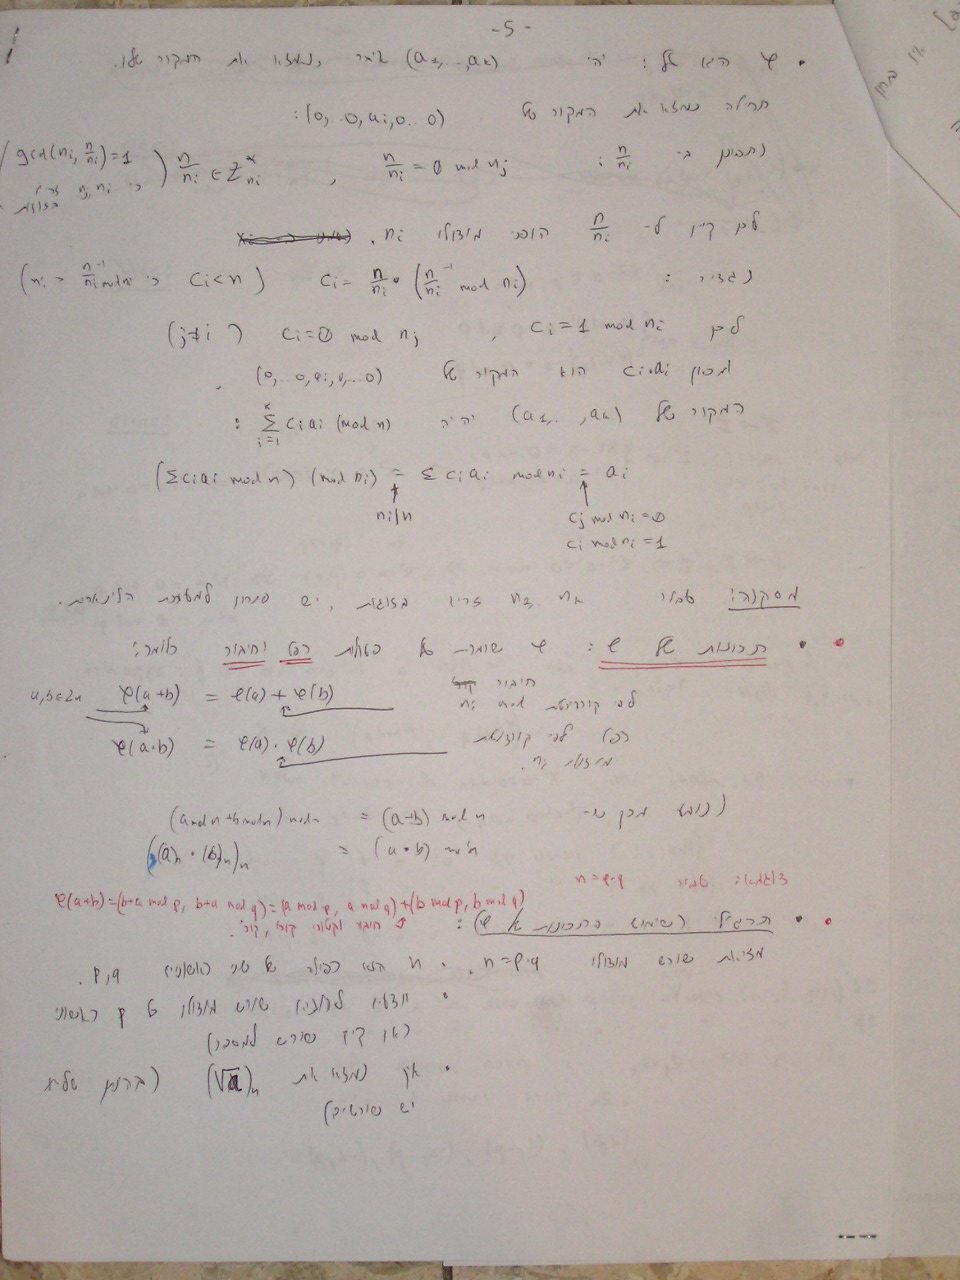 -5-
• φ היא על: יהי (a₁,..,aₖ) איבר, נמצא את המקור שלו.
תחילה נמצא את המקור של (0,..0,aᵢ,0..0):
נתבונן ב- n/nᵢ : n/nᵢ = 0 mod nⱼ , n/nᵢ ∈ Z*ₙᵢ (gcd(nᵢ, n/nᵢ)=1 כי nᵢ, nⱼ זרים בזוגות)
לכן קיים ל- n/nᵢ הופכי מודולו nᵢ.
נגדיר: cᵢ = n/nᵢ · (n/nᵢ⁻¹ mod nᵢ) (cᵢ<n כי n/nᵢ⁻¹ mod nᵢ < nᵢ)
לכן cᵢ=1 mod nᵢ , cᵢ=0 mod nⱼ (j≠i)
ומכאן cᵢ·aᵢ הוא המקור של (0,...0,aᵢ,0,...0),
המקור של (a₁,..,aₖ) יהיה Σᵢ₌₁ᵏ cᵢaᵢ (mod n) :
(Σcᵢaᵢ mod n) (mod nᵢ) = Σ cᵢaᵢ mod nᵢ = aᵢ
nᵢ|n
cⱼ mod nᵢ = 0
cᵢ mod nᵢ = 1
מסקנה: עבור n₁, nₖ זרים בזוגות, יש פתרון למערכת הלינארית.
• תכונות של φ: φ שומרת על פעולות כפל וחיבור כלומר:
a,b∈Zₙ φ(a+b) = φ(a)+φ(b) חיבור לפי קורדינטות mod nᵢ
φ(a·b) = φ(a)·φ(b) כפל לפי קורדינטות מודולו nᵢ.
(נובע מכך ש- (a mod n + b mod n) mod n = (a+b) mod n
((a)ₙ·(b)ₙ)ₙ = (a·b) mod n
דוגמא: עבור n=p·q
φ(a+b)=(b+a mod p, b+a mod q)=(a mod p, a mod q)+(b mod p, b mod q)
• תרגיל (שימוש בתכונות של φ):
מציאת שורש מודולו n=p·q. • n הוא כפולה של שני ראשוניים p,q.
• יודעים להוציא שורש מודולו p ראשוני
(אם קיים שורש למספר)
• איך נמצא את (√a)ₙ (בהינתן שלא
יש שורשים)